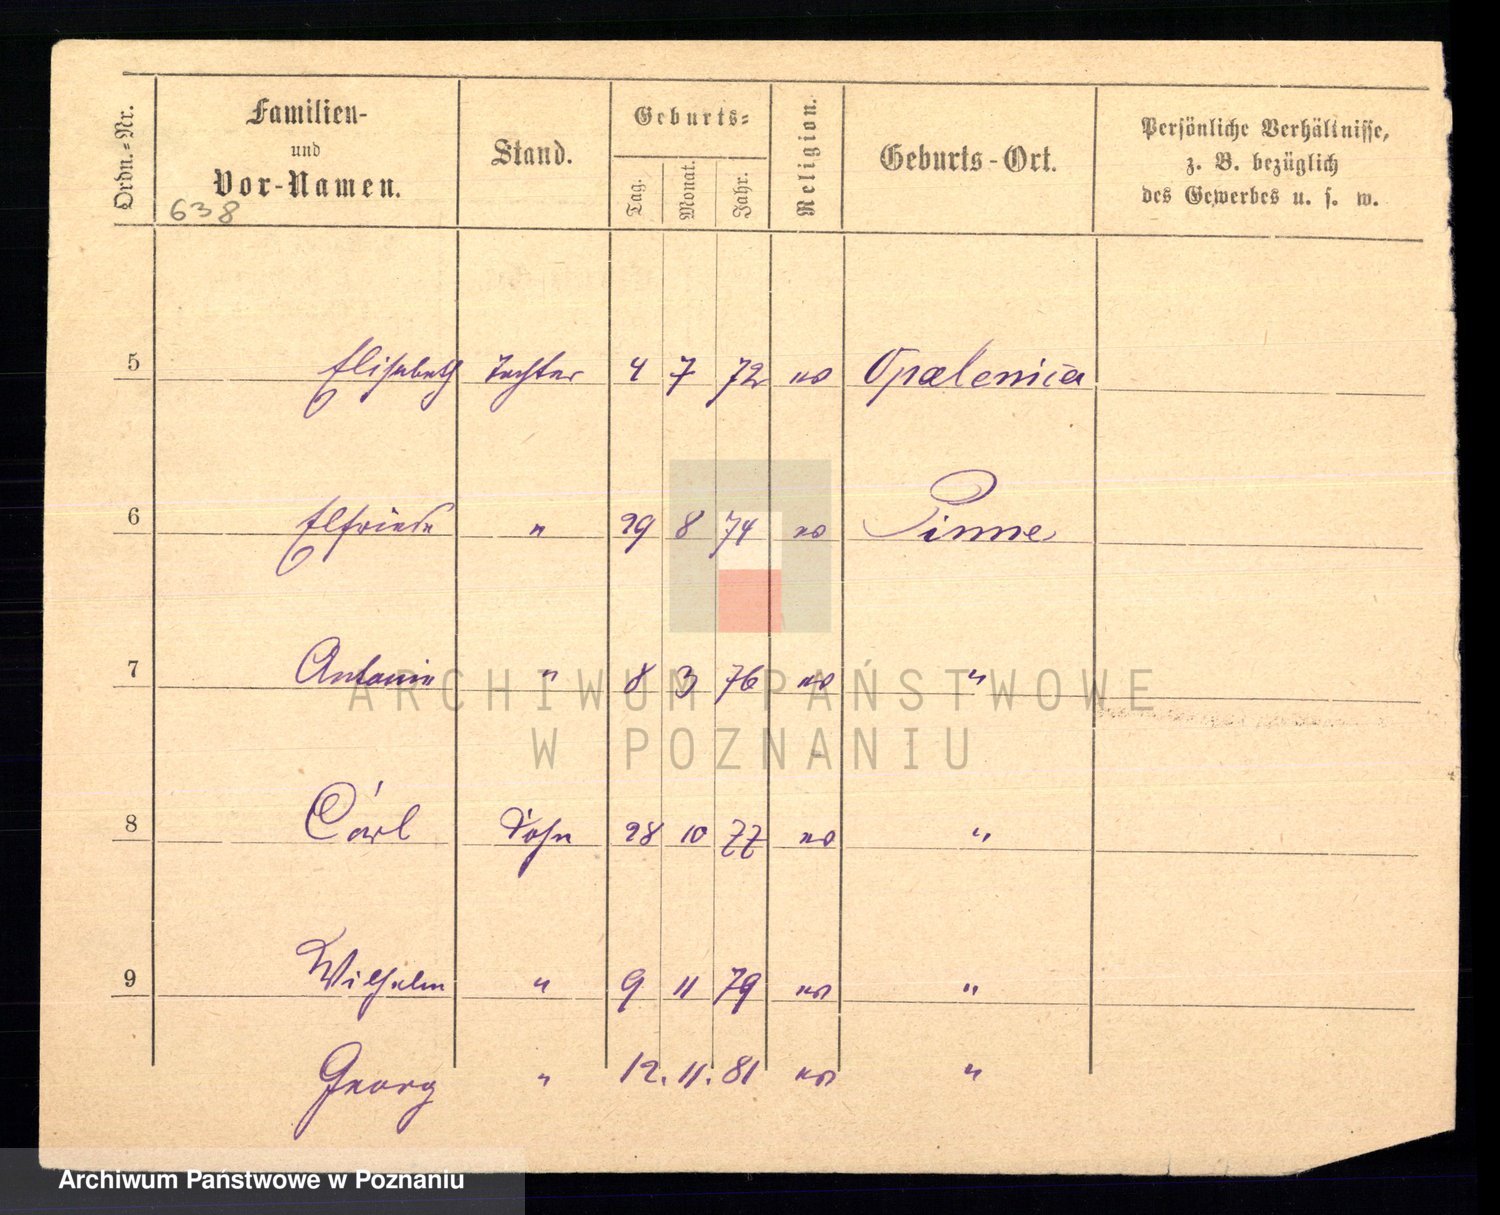 Ordn.=Nr.
Familien-
und
Vor-Namen.
Stand.
Geburts=
Tag.
Monat.
Jahr.
Religion.
Geburts-Ort.
Persönliche Verhältnisse,
z. B. bezüglich
des Gewerbes u. s. w.
638
5 Elisabeth Tochter 4 7 72 ev Opalenica
6 Elfriede " 29 8 74 ev Pinne
7 Antonie " 8 3 76 ev "
ARCHIWUM PAŃSTWOWE
W POZNANIU
8 Carl Sohn 28 10 77 ev "
9 Wilhelm " 9 11 79 ev "
Georg " 12. 11. 81 ev "
Archiwum Państwowe w Poznaniu